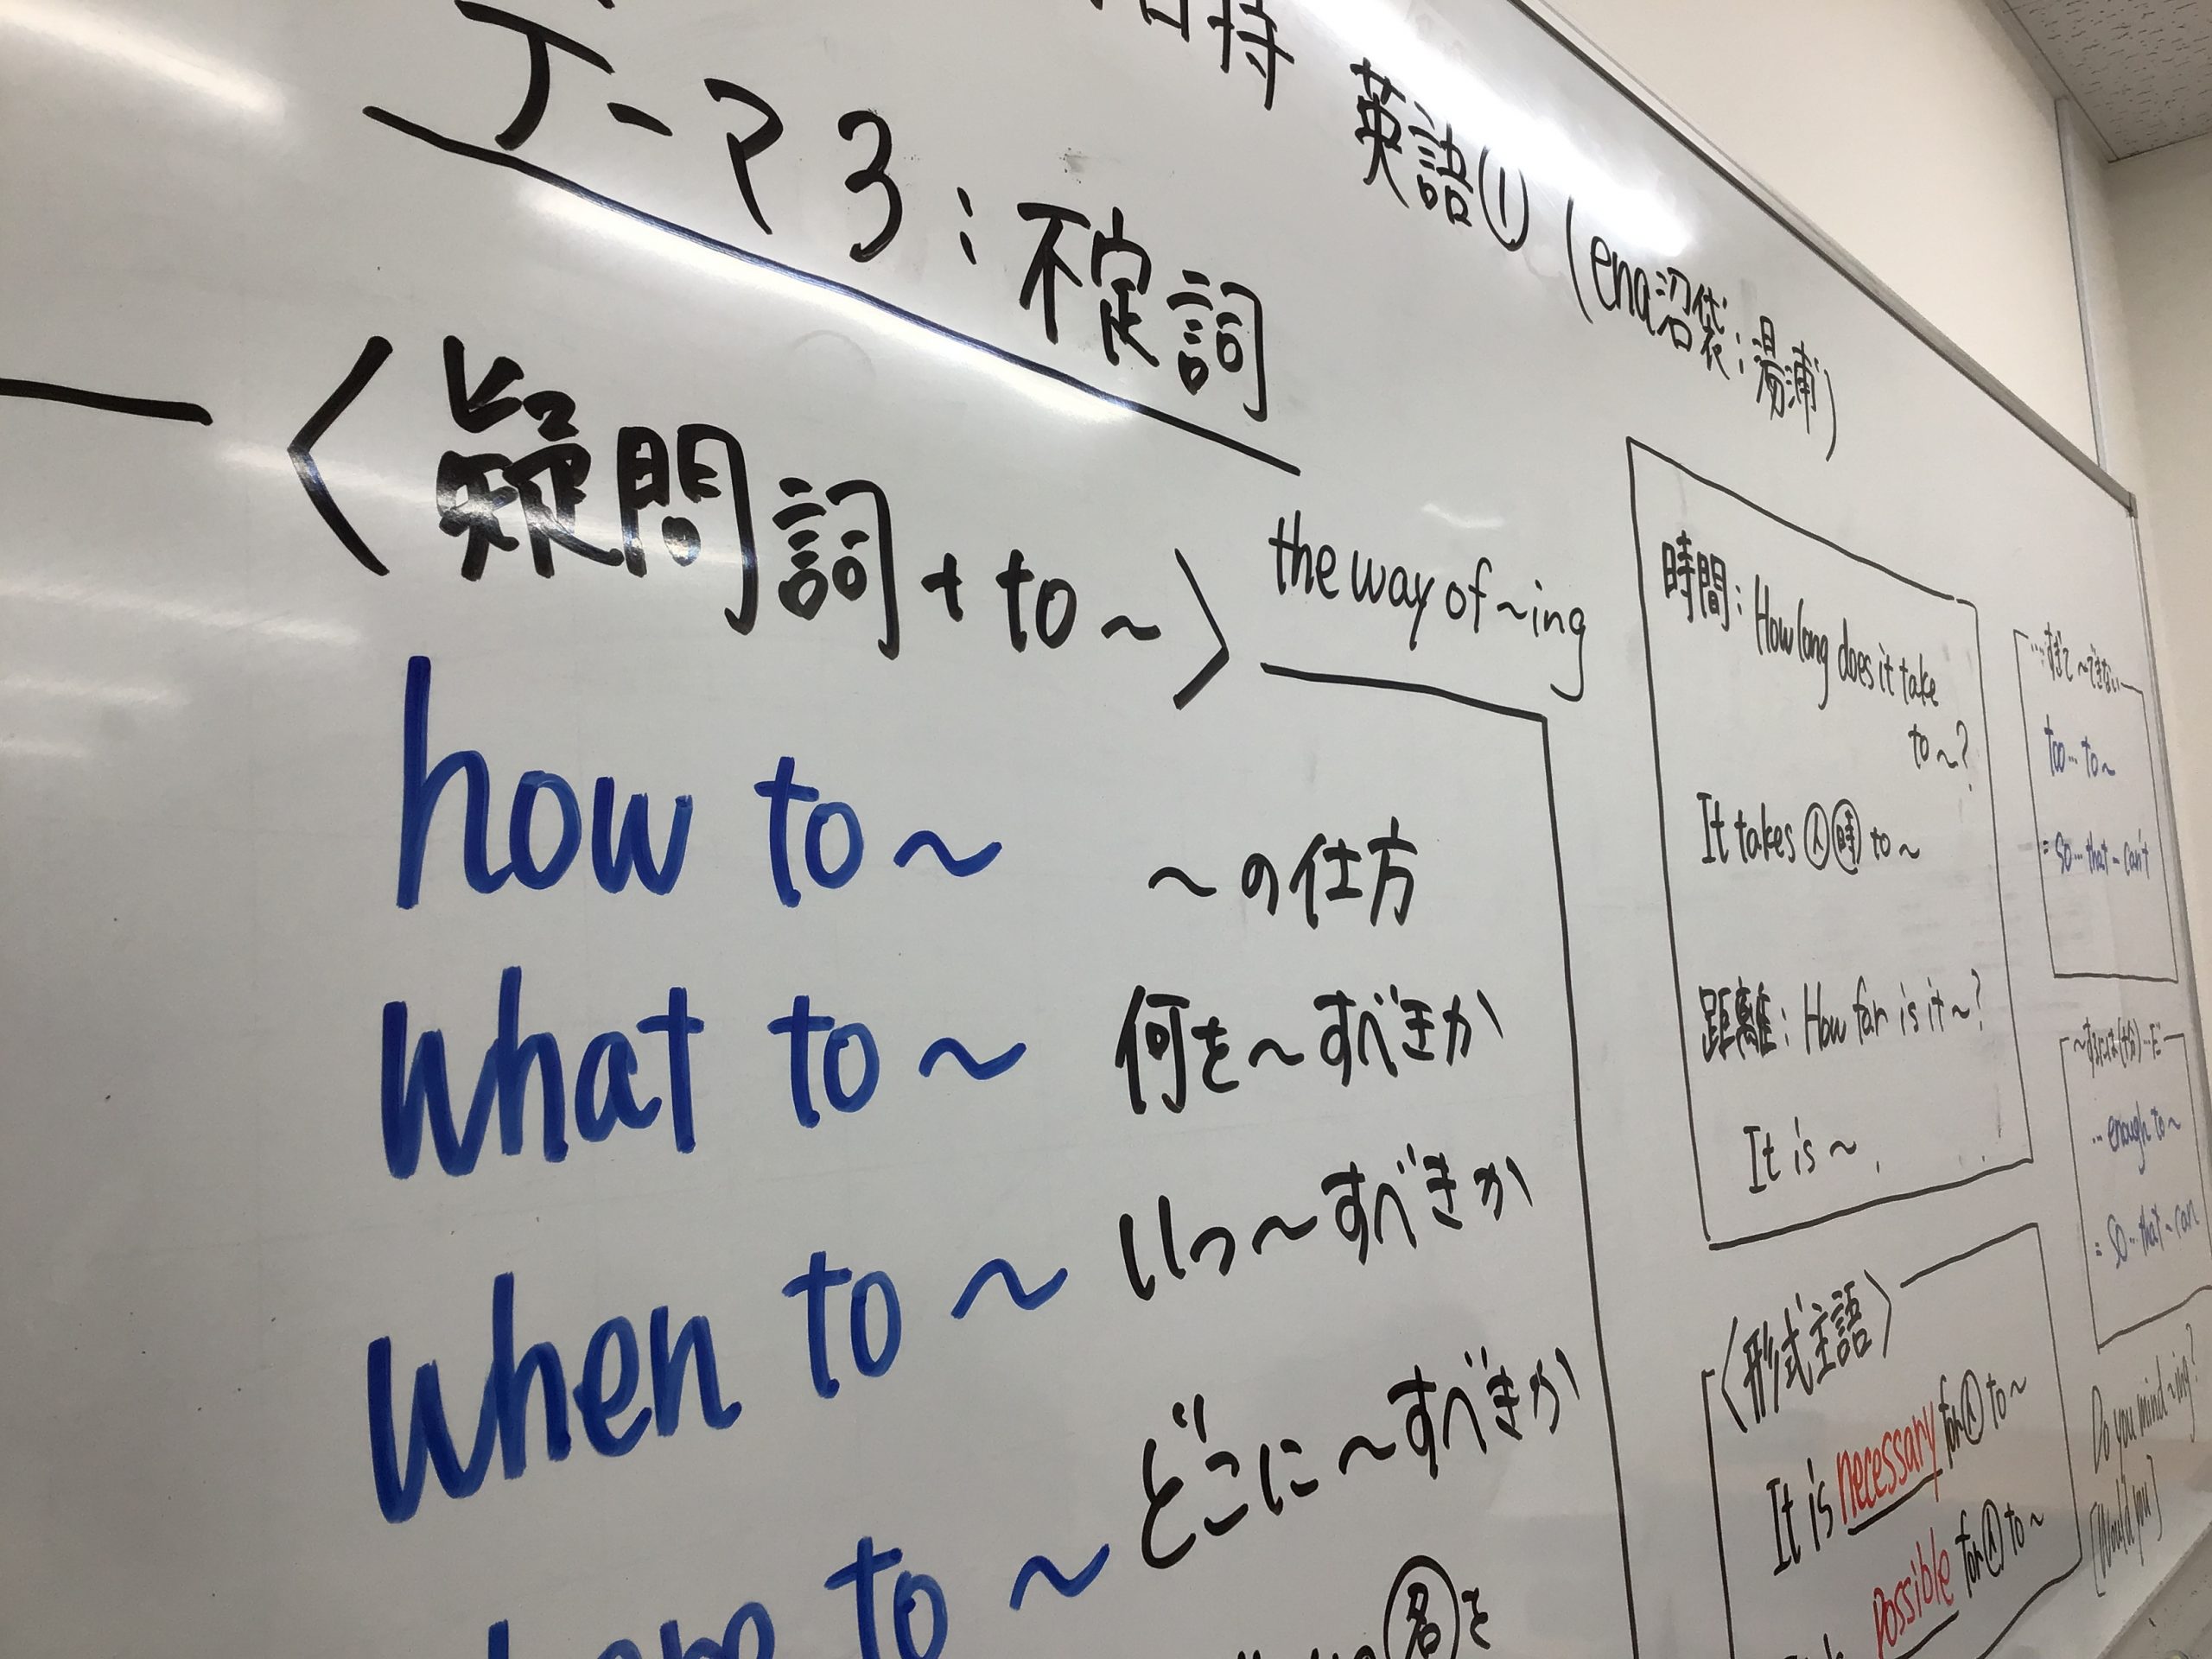 英語① (ena沼袋:湯浦)
テーマ3:不定詞
〈疑問詞+to~〉
the way of ~ing
how to ~ ~の仕方
what to ~ 何を~すべきか
when to ~ いつ~すべきか
to ~ どこに~すべきか
名を
時間: How long does it take
to ~?
It takes 人 時 to ~
距離: How far is it ~?
It is ~.
〈形式主語〉
It is necessary for 人 to ~
possible for 人 to ~
…すぎて~できない
too … to ~
= so … that ~ can't
… enough to ~
= so … that ~ can
Do you mind ~ing?
[Would you]